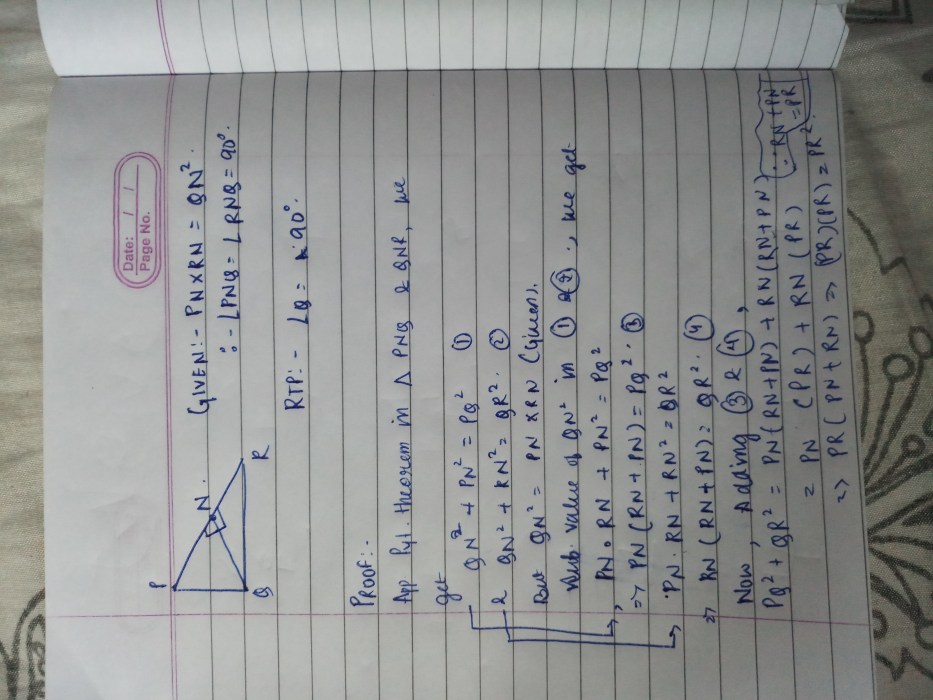 Date: / /
Page No.
P
N.
Q
R
GIVEN:- PN×RN = QN².
:- ∠PNQ = ∠RNQ = 90°.
RTP:- ∠Q = 90°.
PROOF:-
App Pyt. theorem in Δ PNQ & QNR, we
get
QN² + PN² = PQ² ①
& QN² + RN² = QR². ②
But QN² = PN × RN (Given).
Sub. value of QN² in ① & ②, we get
PN • RN + PN² = PQ²
=> PN (RN + PN) = PQ². ③
PN. RN + RN² = QR²
=> RN (RN + PN) = QR². ④
Now, Adding ③ & ④,
PQ² + QR² = PN (RN+PN) + RN (RN+PN)
∵ RN + PN
= PR
= PN (PR) + RN (PR)
=> PR (PN + RN) => (PR)(PR) = PR².